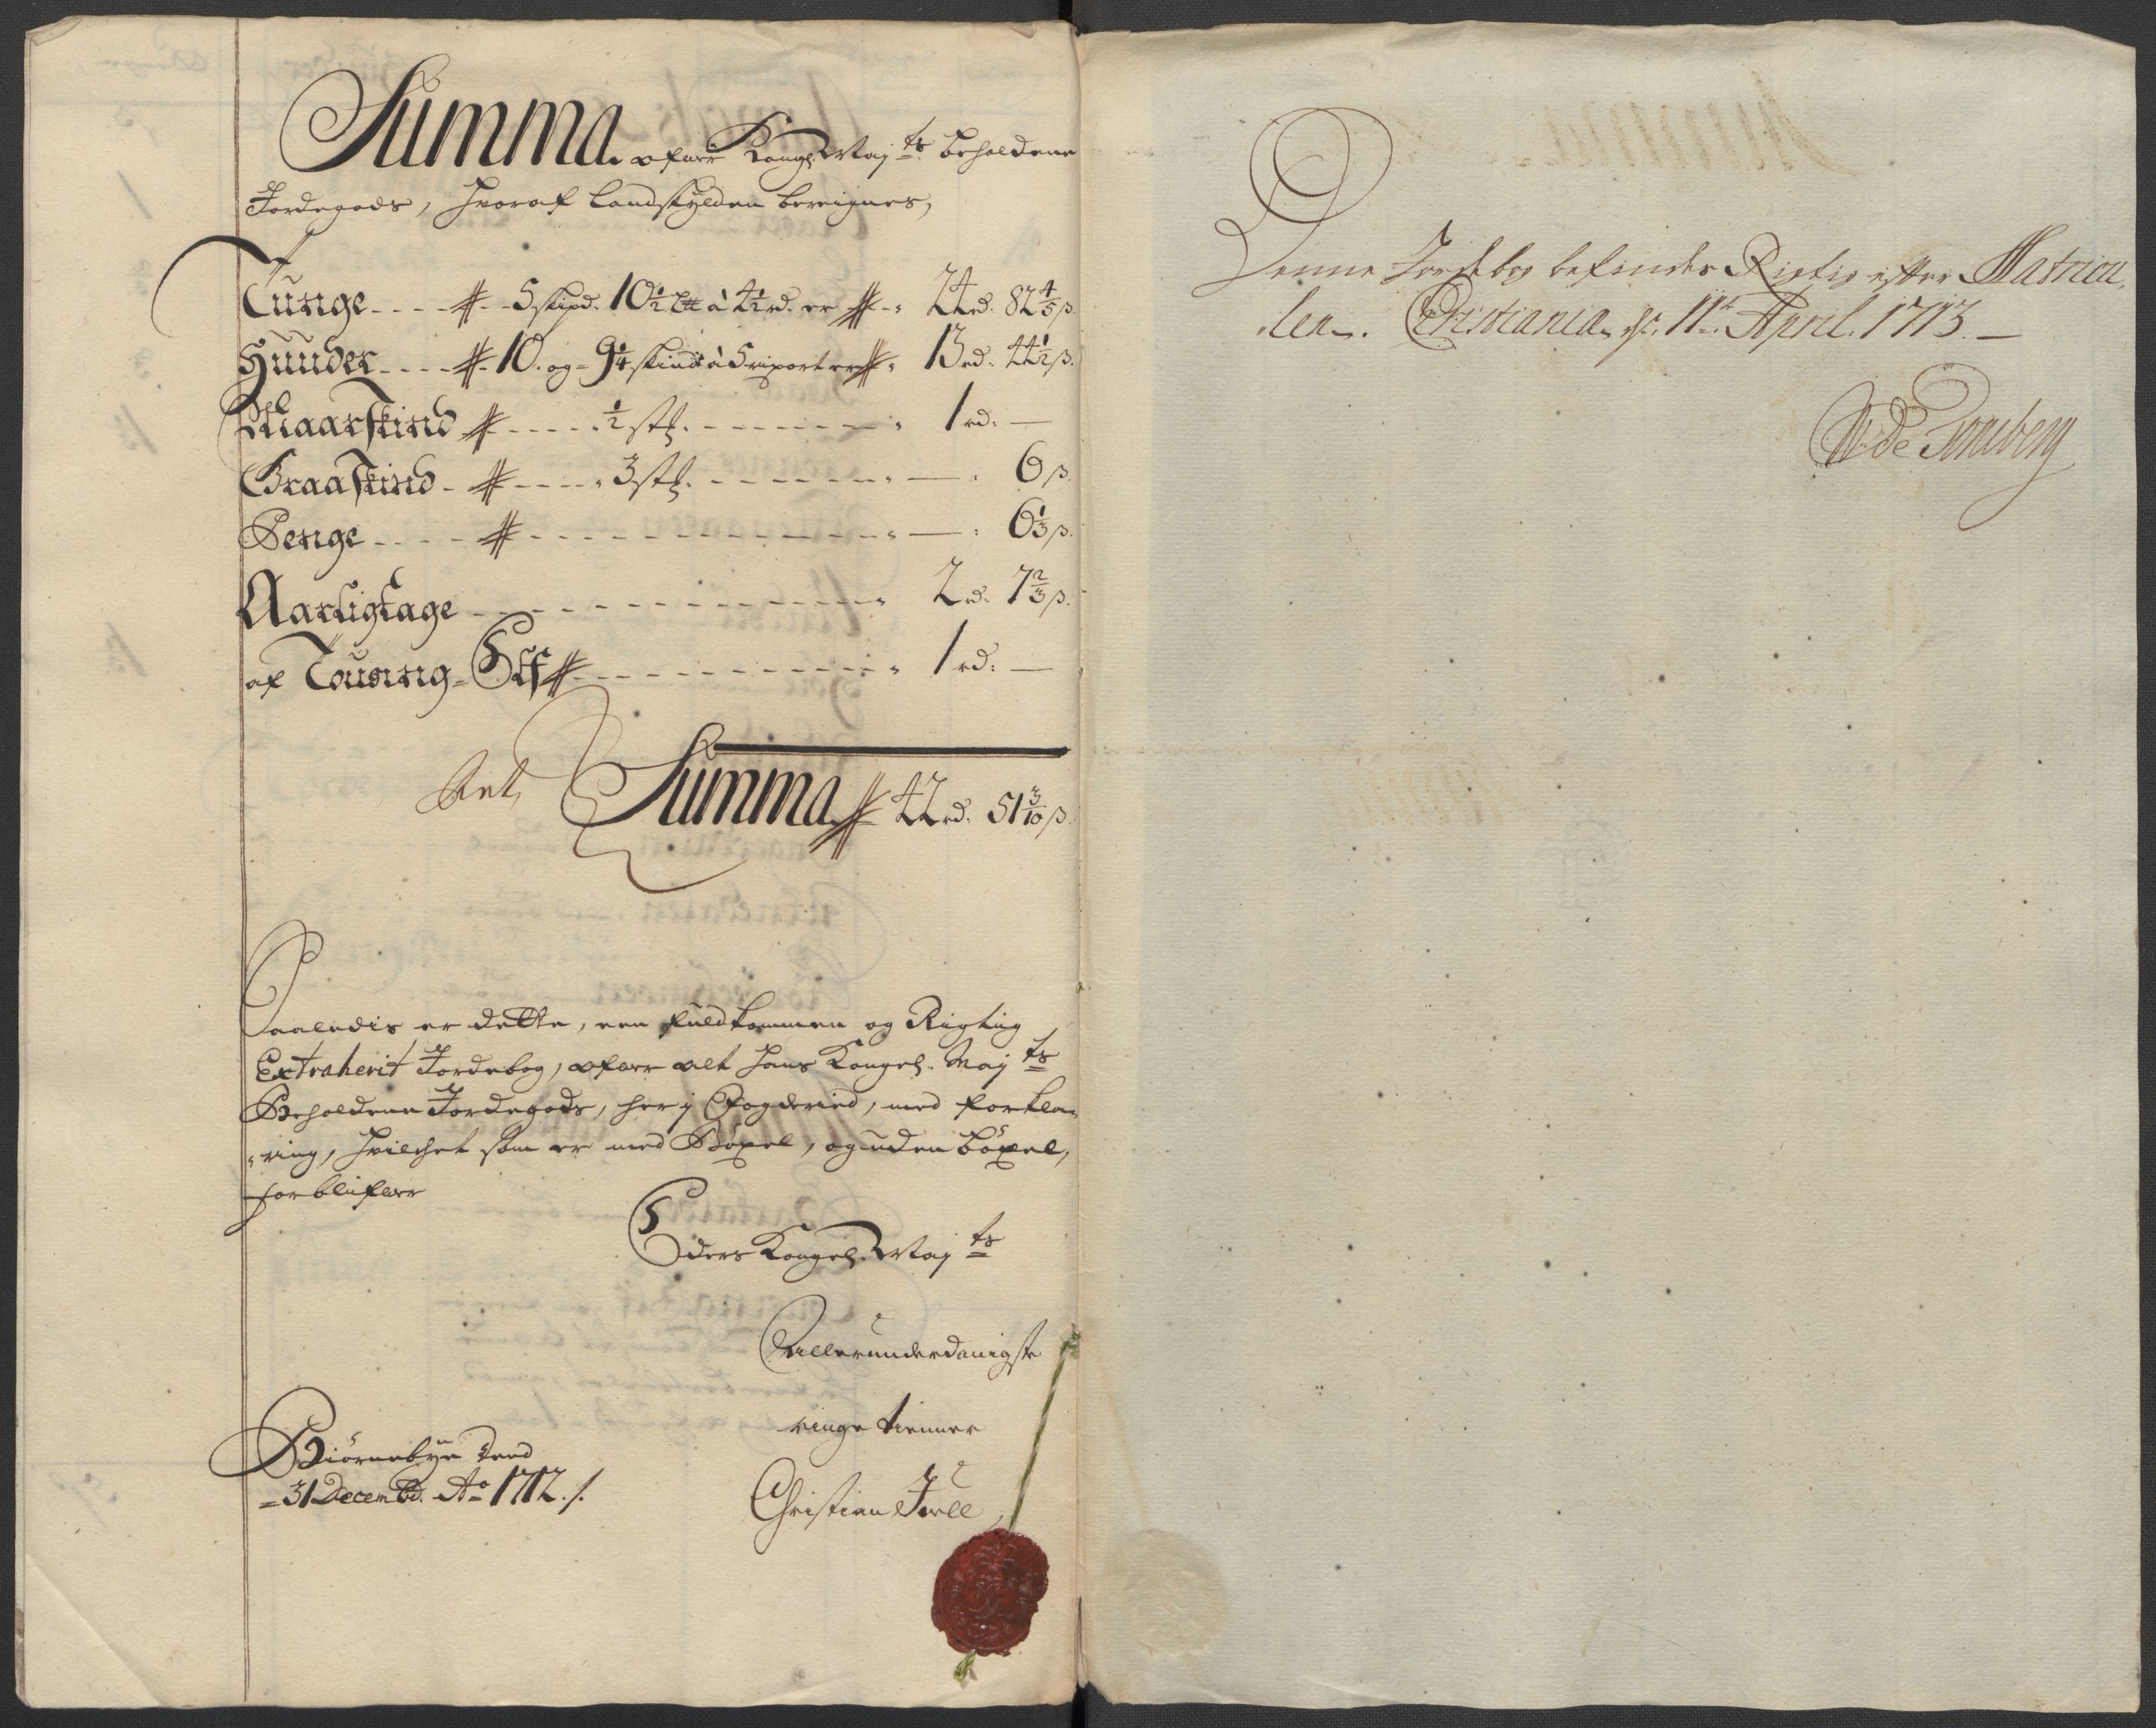 Summa ofver Kongl: Maj:ts beholdene
Jordegods, hvoraf landskylden bereignes,
Tunge - - - - 5 skipd. 10 1/2 L℔ à 4 1/2 rd. er - 24 rd. 82 4/5 β.
Huuder - - - - 10. og 9 1/4 skind à 5 rixort er 13 rd. 44 1/2 β.
Maarskind - - - - 1/2 stk. - - - - 1 rd. —
Graaskind - - - - 3 stk. - - - - — 6 β.
Penge - - - - — 6 1/3 β.
Aarligtage - - - - 2 rd. 7 2/3 β.
af - - - - 1 rd. —
Summa 42 rd. 51 3/10 β.
Saaledis er dette, een fuldkommen og Rigtig
Extraherit Jordebog, ofver alt hans Kongel. Maj:ts
Beholdene Jordegods, her j Fogderied, med forkla-
ring, hvilchet som er med Böxel, og uden böxel,
forblifver
Eders Kongel. Maj:ts
Allerunderdanigste
ringe tienner
Christian
Biörnebye dend
31 Decembr. Ao 1712 ./.
Denne Jordebog befindes Rigtig efter Matricu-
len. Christiania d. 11te April. 1713. —
W de Tonsberg